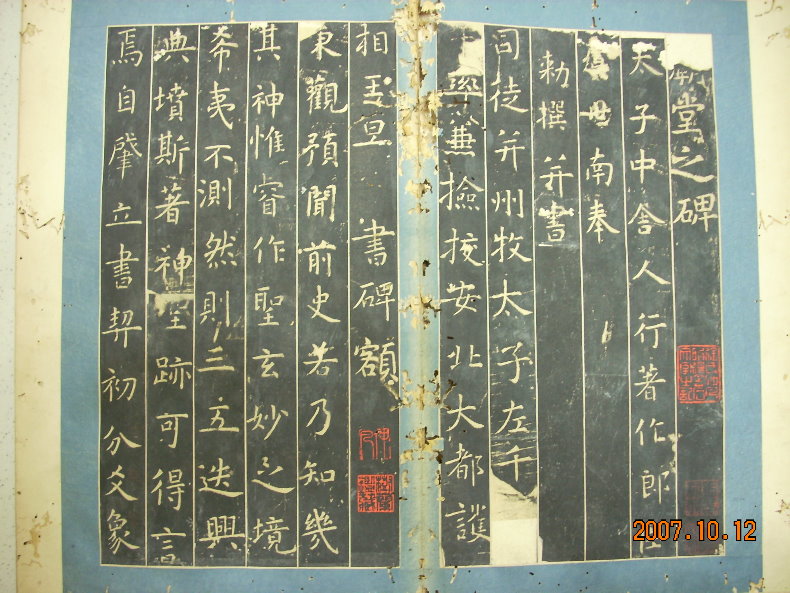 堂之碑
太子中舍人行著作郎臣
世南奉
勑撰并書
司徒并州牧太子左千
兼撿挍安北大都護
相王旦書碑額
東觀預聞前史若乃知幾
其神惟睿作聖玄妙之境
希夷不測然則三五迭興
典墳斯著神蹤可得言
焉自肇立書契初分爻象
2007.10.12